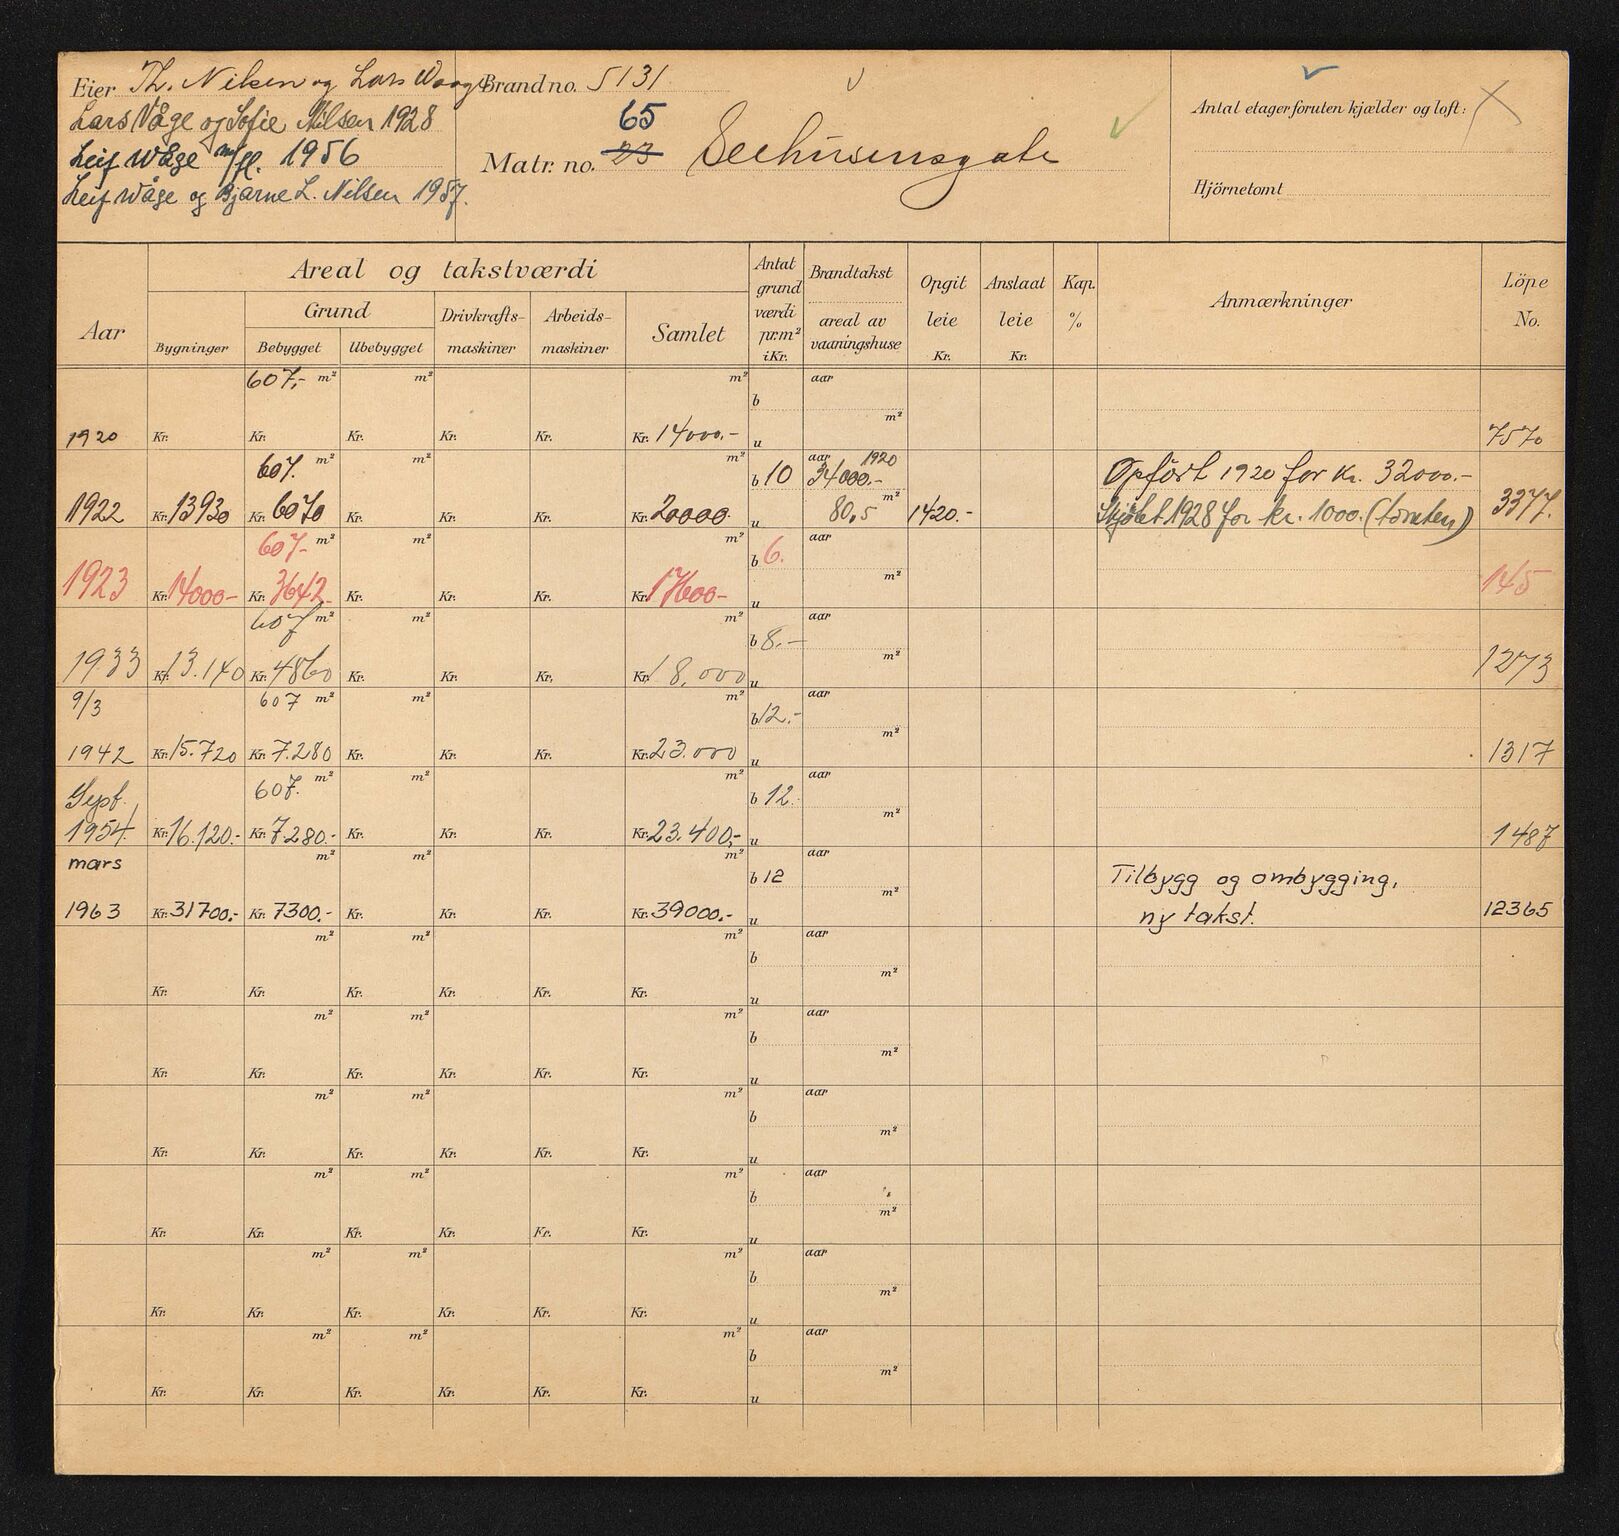 Eier Th. Nilsen og Lars Waage
Lars Våge og Sofie Nilsen 1928
Leif Wåge m/fl. 1956
Leif Wåge og Bjarne L. Nilsen 1957.
Brand no. 5131
65
Matr. no. 23 Seehusensgate
Antal etager foruten kjælder og loft:
Hjörnetomt
Aar
Areal og takstværdi
Grund
Bygninger Bebygget Ubebygget
Drivkrafts-maskiner
Arbeids-maskiner
Samlet
Antat grund værdi pr.m² i Kr.
Brandtakst
areal av vaaningshuse
Opgit leie Kr.
Anslaat leie Kr.
Kap. %
Anmærkninger
Löpe No.
607,- m² m² m² b aar m²
1920 Kr. Kr. Kr. Kr. Kr. Kr. 14000.- u 7570
607. m² m² m² b 10 aar 1920 34000.- Opført 1920 for kr. 32000.-
1922 Kr. 13930 Kr. 6070 Kr. Kr. Kr. Kr. 20000.- u 80,5 m² 1420.- Skjøtet 1928 for kr. 1000. (tomten) 3377.
607- m² m² m² b 6. aar m²
1923 Kr. 14000- Kr. 3642- Kr. Kr. Kr. Kr. 17600- u 145
607 m² m² m² b 8.- aar m²
1933 Kr. 13.140 Kr. 4860 Kr. Kr. Kr. Kr. 18,000 u 1273
9/3 607 m² m² m² b 12.- aar m²
1942 Kr. 15.720 Kr. 7.280 Kr. Kr. Kr. Kr. 23.000 u 1317
Sept. 607. m² m² m² b 12.- aar m²
1954. Kr. 16.120.- Kr. 7.280.- Kr. Kr. Kr. Kr. 23.400,- u 1487
mars m² m² m² b 12 aar m² Tilbygg og ombygging,
1963 Kr. 31700.- Kr. 7300.- Kr. Kr. Kr. Kr. 39000.- u ny takst. 12365
m² m² m² b aar m²
Kr. Kr. Kr. Kr. Kr. Kr. u
m² m² m² b aar m²
Kr. Kr. Kr. Kr. Kr. Kr. u
m² m² m² b aar m²
Kr. Kr. Kr. Kr. Kr. Kr. u
m² m² m² b aar m²
Kr. Kr. Kr. Kr. Kr. Kr. u
m² m² m² b aar m²
Kr. Kr. Kr. Kr. Kr. Kr. u
m² m² m² b aar m²
Kr. Kr. Kr. Kr. Kr. Kr. u